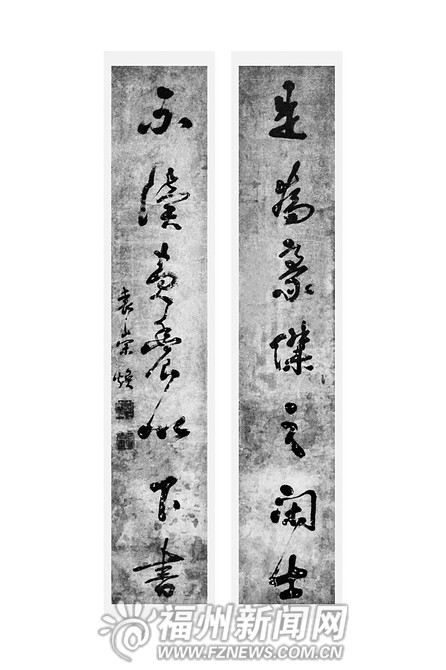 是為豪傑 閒
不讀黃農以下書
袁崇煥
福州新闻网
WWW.FZNEWS.COM.CN